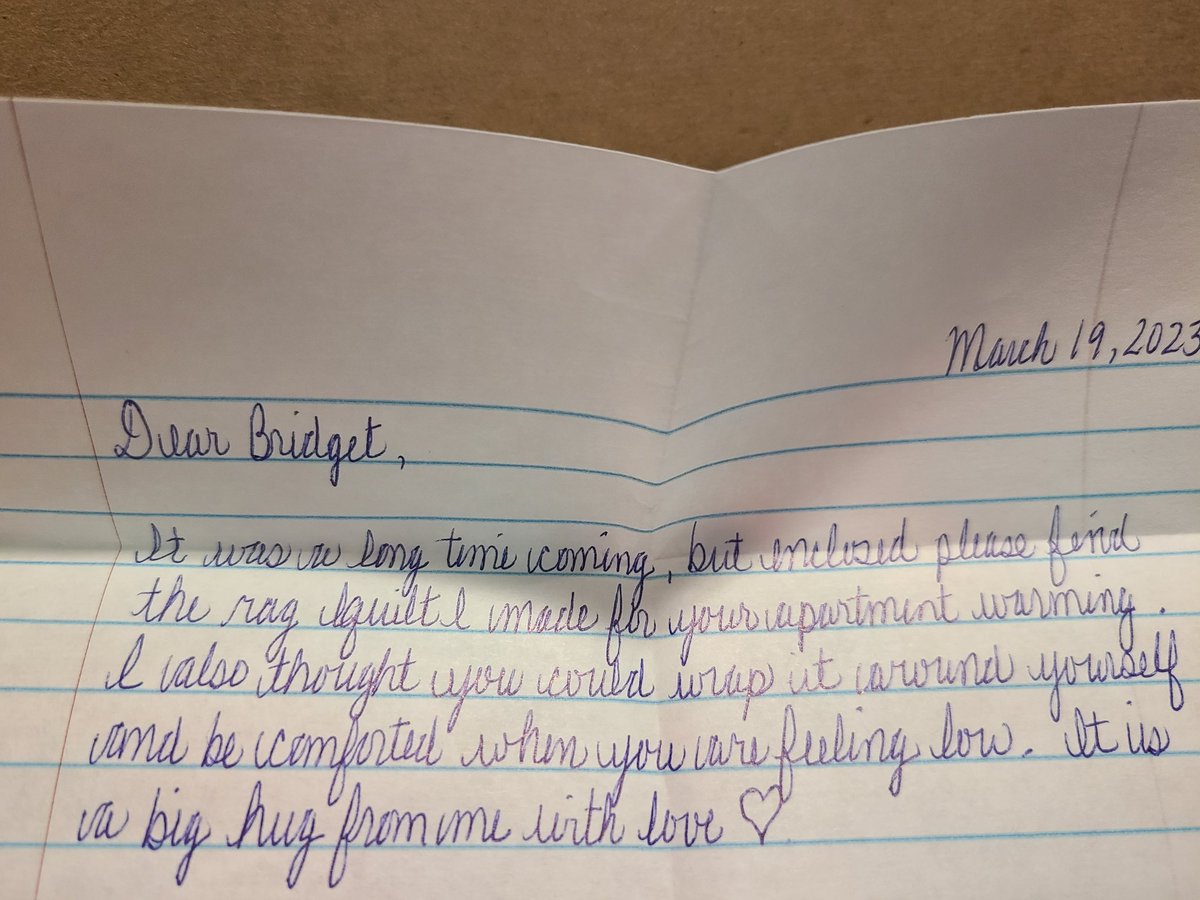 March 19, 2023
Dear Bridget,
It was a long time coming, but enclosed please find
the rag quilt I made for your apartment warming.
I also thought you could wrap it around yourself
and be comforted when you are feeling low. It is
a big hug from me with love ♡